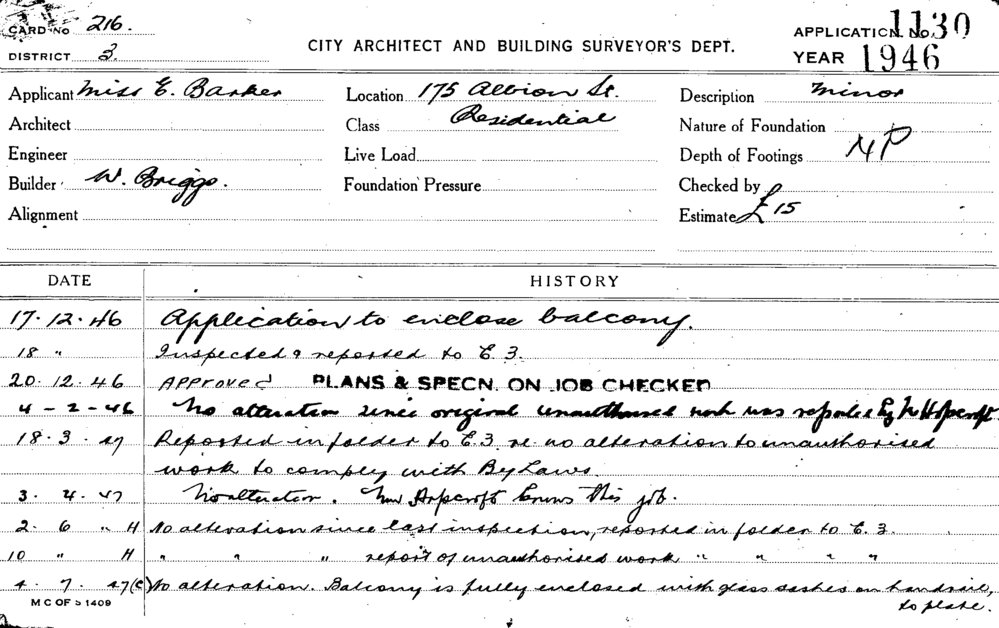 CARD No 216.
DISTRICT 3.
CITY ARCHITECT AND BUILDING SURVEYOR'S DEPT.
APPLICATION No 1130
YEAR 1946
Applicant Miss E. Barker Location 175 Albion St. Description Minor
Architect Class Residential Nature of Foundation
Engineer Live Load Depth of Footings NP
Builder W. Briggs. Foundation Pressure Checked by
Alignment Estimate £15
DATE HISTORY
17.12.46 Application to enclose balcony.
18 " Inspected & reported to E.3.
20.12.46 Approved PLANS & SPECN. ON JOB CHECKED
4-2-46 No alteration since original unauthorised work was reported by Mr Hopcroft
18.3.47 Reported in folder to E.3 re no alteration to unauthorised
work to comply with By Laws.
3.4.47 No alteration. Mr Hopcroft knows this job.
2.6 " H No alteration since last inspection, reported in folder to E.3.
10 " H " " " report of unauthorised work " " " "
4.7.47(C) No alteration. Balcony is fully enclosed with glass sashes on handrail,
to plate.
M C OF S 1409